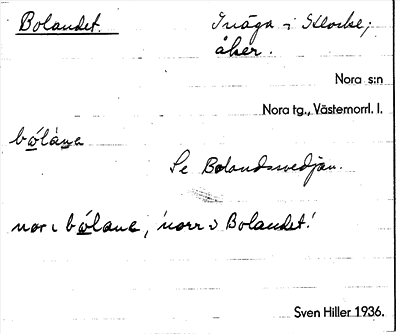 Bolandet. Inäga i Klocke;
åker.
Nora s:n
Nora tg., Västernorrl. l.
bólàna
Se Bolandsvedjan.
nor i bólana, 'norr i Bolandet.'
Sven Hiller 1936.